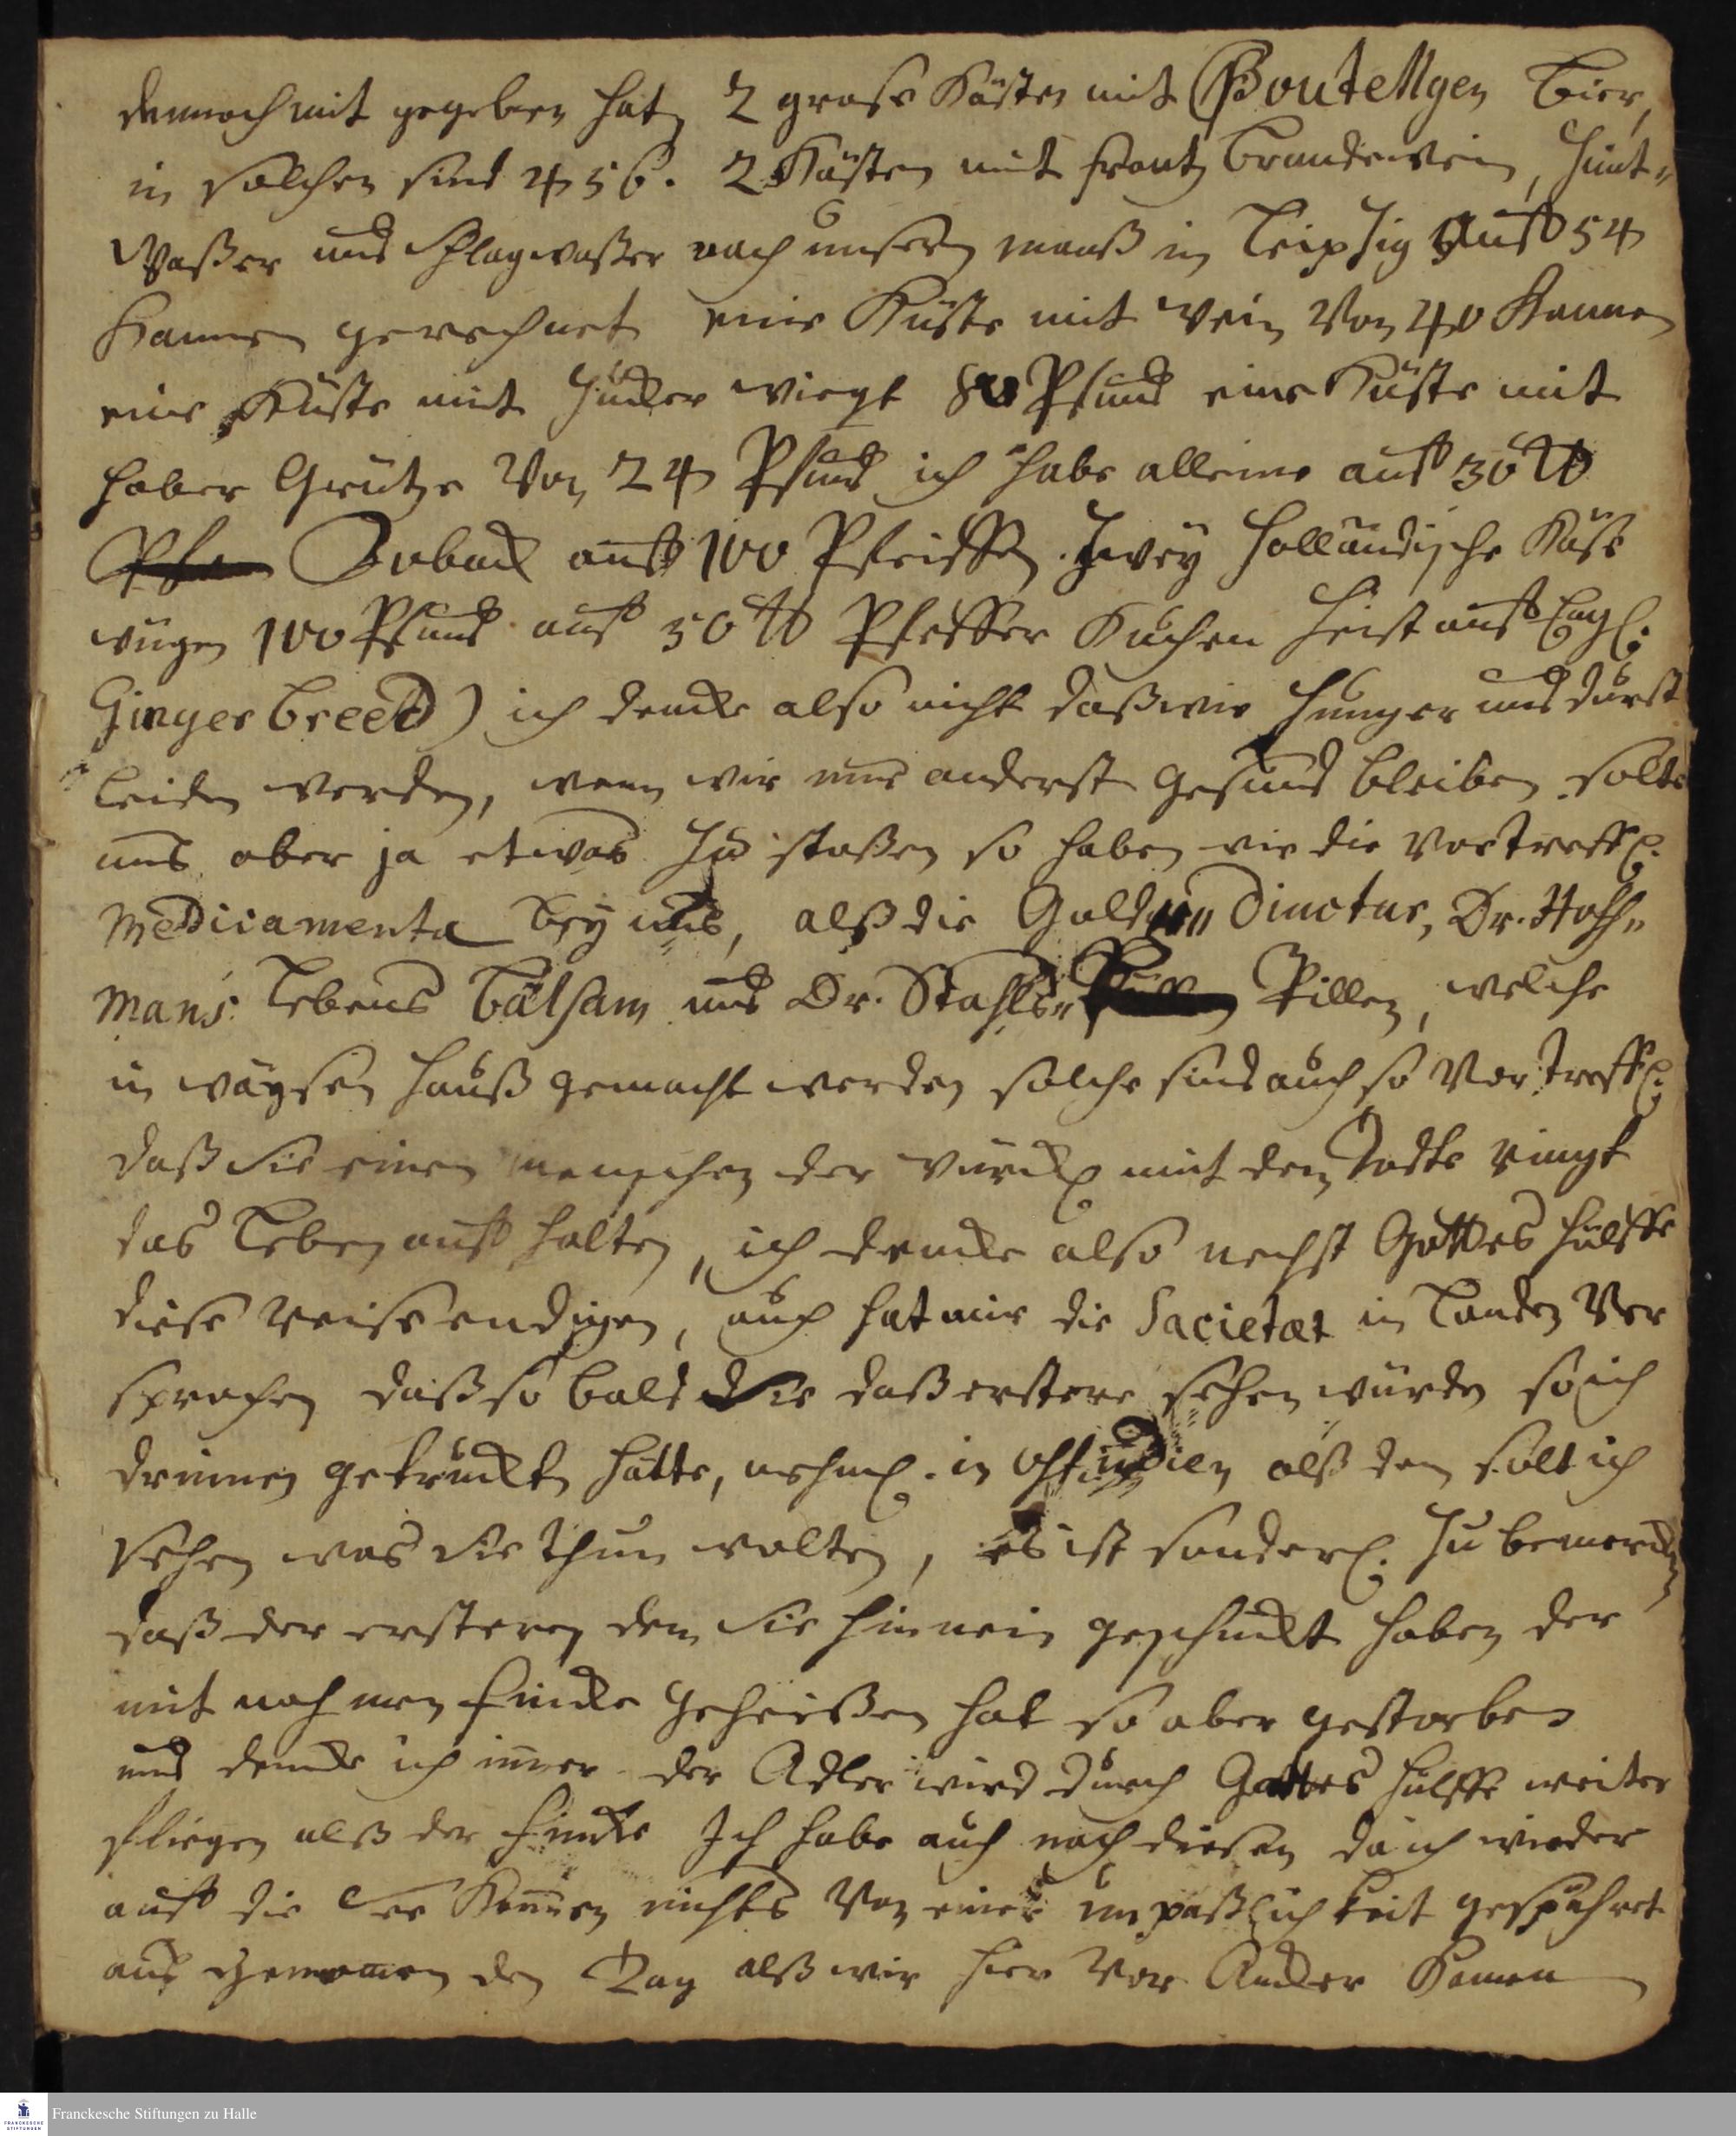 dennoch mit gegeben hat, 2 grose Kästen mit Boutellgen Bier,
in solchen sind 456. 2 Kästen mit frantz Brandewein, Zimt-
Waßer und Schlagwaßer nach unsern maaß in Leipzig auf 54
Kannen gerechnet eine Küste mit Wein Von 40 Kannen
eine Küste mit Zucker wiegt 80 Pfund eine Küste mit
haber Grütze Von 24 Pfund ich habe alleine auf 30 ℔
Toback auf 100 Pfeiffen. Zwey holländische Käße
wiegen 100 Pfund auf 50 ℔ Pfeffer Kuchen heist auf Engl:
Gingerbreed) ich dencke also nicht daß wir hunger und durst
leiden werden, wenn wir nur anderst gesund bleiben solte
uns aber ja etwas zu stoßen so haben wir die Vortreffl.
Medicamenta bey uns, alß die Golde Tinctur, Dr. Hoff-
mans Lebens Balsam und Dr. Stahls Pillen, welche
in wäysen hauß gemacht werden solche sind auch so Vortreffl:
daß Sie einen menschen der würckl mit den Todte ringt
das Leben auf halten, ich dencke also nechst Gottes hülffe
diese reise endigen, auch hat mir die Societæt in Londen Ver
sprochen daß so bald Sie daß erstere sehen würden so ich
drinnen getruckt hätte, nehml. in Ostindien alß den solt ich
sehen was Sie thun wolten, es ist sonderl. zu bemercken
daß der ersteren den Sie hinnein geschickt haben der
mit nahmen fincke geheißen hat so aber gestorben
und dencke ich imer der Adler wird durch Gottes hülffe weiter
fliegen alß der fincke Ich habe auch nach diesen da ich wieder
auf die See Kommen nichts Von einer unpaßlichkeit gespühret
aus genomen den Tag alß wir hier Vor Ancker Kamen
Franckesche Stiftungen zu Halle